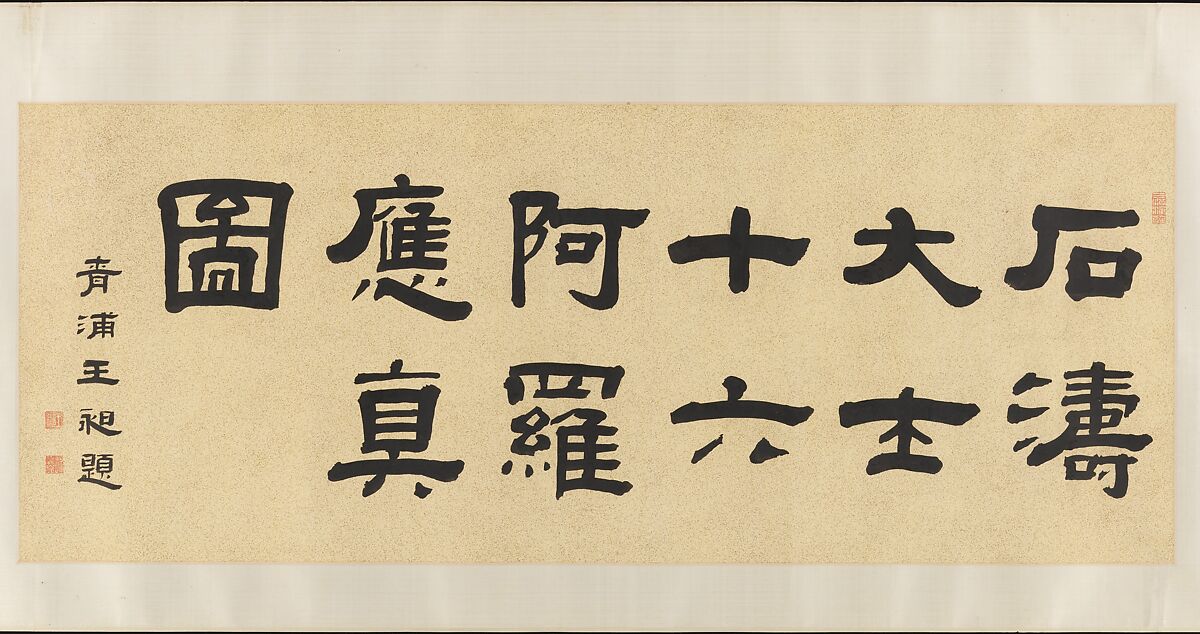 石濤
大士
十六
阿羅
應真
圖
青浦王昶題